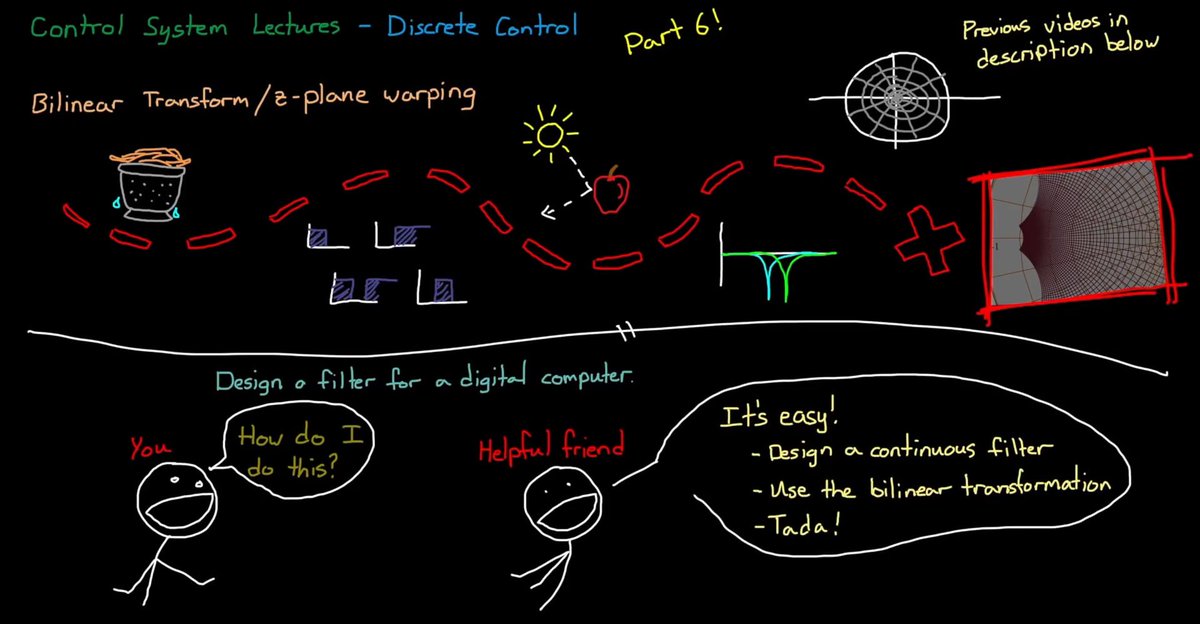 Control System Lectures - Discrete Control
Part 6!
Previous videos in
description below
Bilinear Transform/z-plane warping
Design a filter for a digital computer.
You
How do I
do this?
Helpful friend
It's easy!
- Design a continuous filter
- Use the bilinear transformation
- Tada!